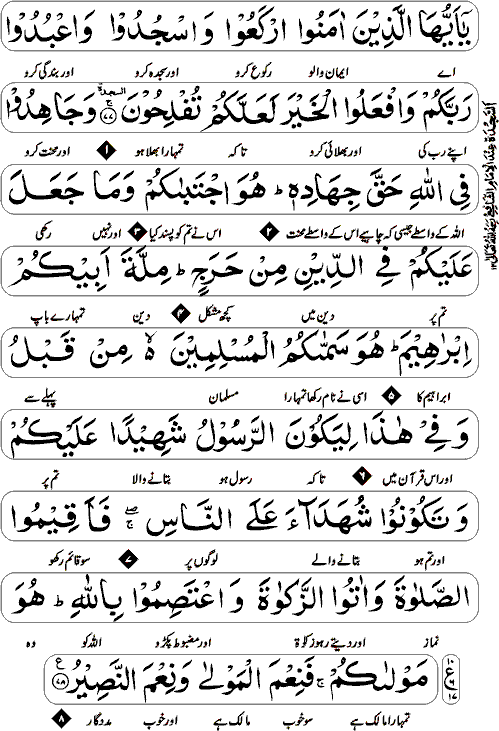 يٰۤاَيُّهَا الَّذِيْنَ اٰمَنُوا ارْكَعُوْا وَاسْجُدُوْا وَاعْبُدُوْا
اے ایمان والو رکوع کرو اور سجدہ کرو اور بندگی کرو
رَبَّكُمْ وَافْعَلُوا الْخَيْرَ لَعَلَّكُمْ تُفْلِحُوْنَ ۩ ﴿۷۷﴾ وَجَاهِدُوْا
اپنے رب کی اور بھلائی کرو تاکہ تمہارا بھلا ہو ۱ اور محنت کرو
فِي اللّٰهِ حَقَّ جِهَادِهٖ ؕ هُوَ اجْتَبٰىكُمْ وَمَا جَعَلَ
اللہ کے واسطے جیسی کہ چاہیے اس کے واسطے محنت ۲ اس نے تم کو پسند کیا ۳ اور نہیں رکھی
عَلَيْكُمْ فِي الدِّيْنِ مِنْ حَرَجٍ ؕ مِلَّةَ اَبِيْكُمْ
تم پر دین میں کچھ مشکل ۴ دین تمہارے باپ
اِبْرٰهِيْمَ ؕ هُوَ سَمّٰىكُمُ الْمُسْلِمِيْنَ ۙ۬ مِنْ قَبْلُ
ابراہیم کا ۵ اسی نے نام رکھا تمہارا مسلمان پہلے سے
وَفِيْ هٰذَا لِيَكُوْنَ الرَّسُوْلُ شَهِيْدًا عَلَيْكُمْ
اور اس قرآن میں ۶ تاکہ رسول ہو بتانے والا تم پر
وَتَكُوْنُوْا شُهَدَآءَ عَلَى النَّاسِ ۖۚ فَاَقِيْمُوا
اور تم ہو بتانے والے لوگوں پر ۷ سو قائم رکھو
الصَّلٰوةَ وَاٰتُوا الزَّكٰوةَ وَاعْتَصِمُوْا بِاللّٰهِ ؕ هُوَ
نماز اور دیتے رہو زکوٰۃ اور مضبوط پکڑو اللہ کو وہ
مَوْلٰىكُمْ ۚ فَنِعْمَ الْمَوْلٰى وَنِعْمَ النَّصِيْرُ ﴿۷۸﴾ ع
تمہارا مالک ہے سو خوب مالک ہے اور خوب مددگار ۸